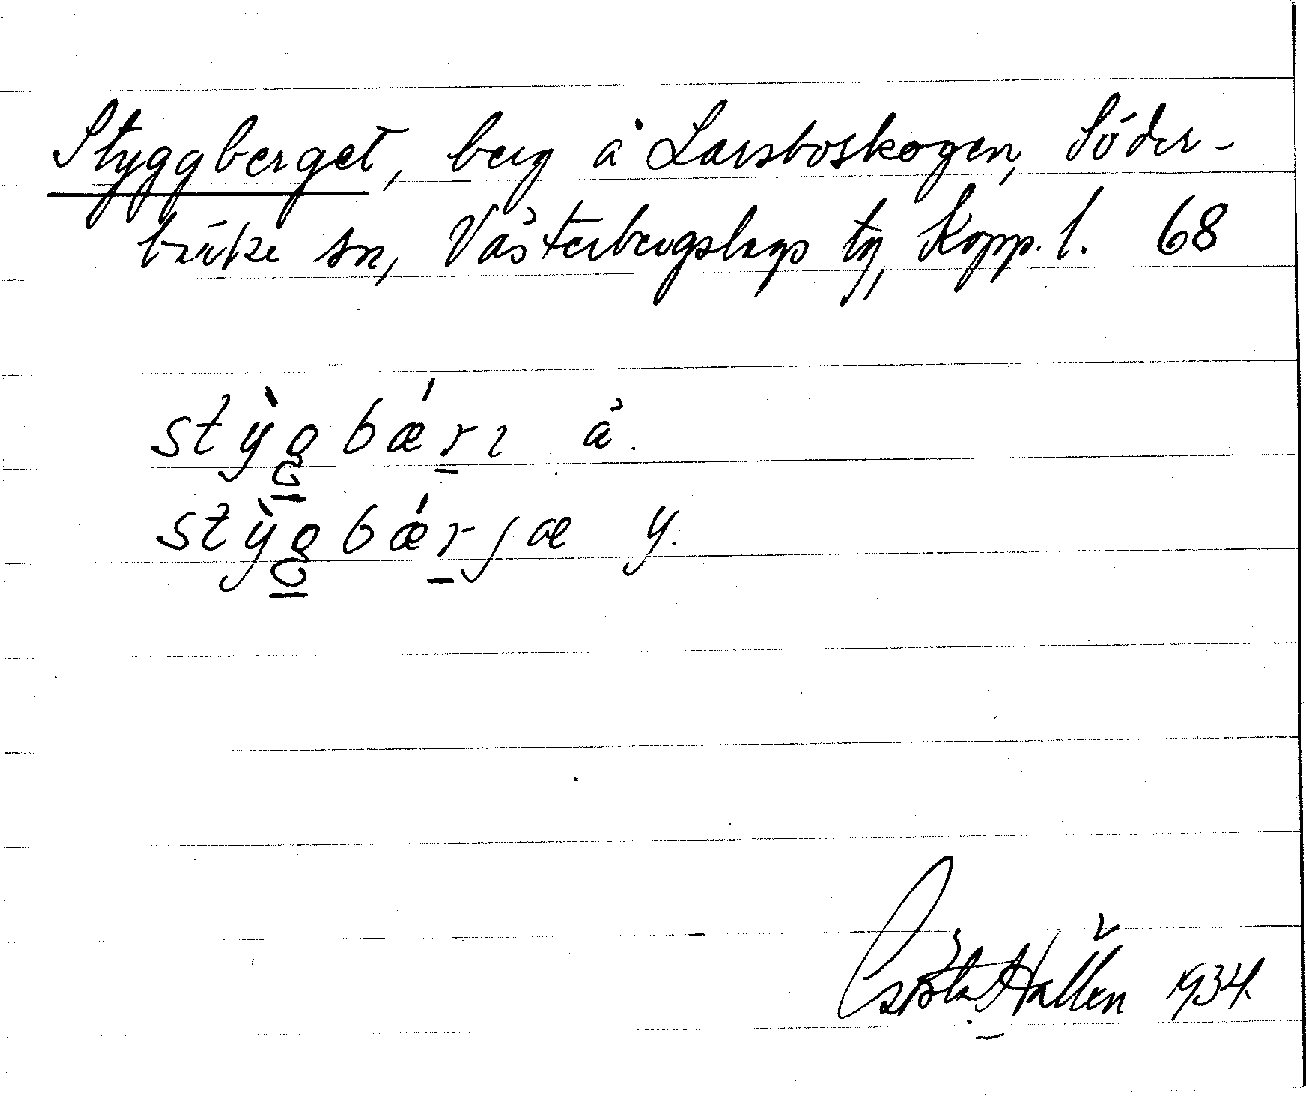 Styggberget, berg å Larsboskogen, Söder-
bärke sn, Västerbergslags tg, Kopp. l. 68
stỳg̲bǽr̲ı ä.
stỳg̲bǽr̲jæ y.
Gösta Hallén 1934.